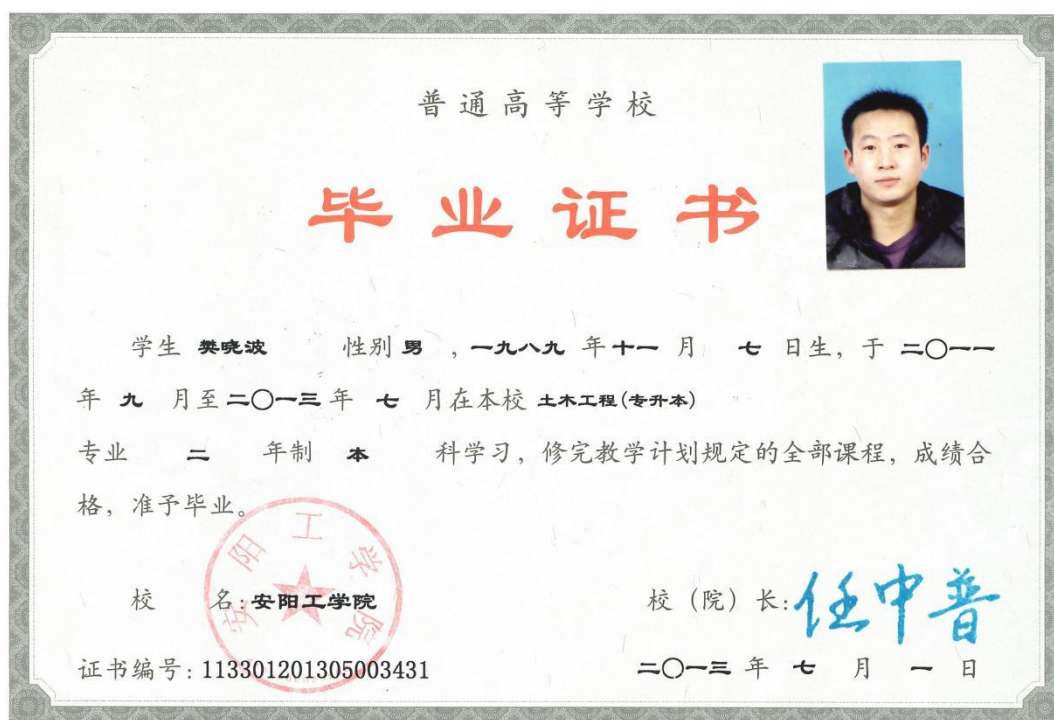 普通高等学校
毕业证书
学生 樊晓波 性别 男 ，一九八九 年 十一 月 七 日生，于 二〇一一
年 九 月至 二〇一三 年 七 月在本校 土木工程(专升本)
专业 二 年制 本 科学习，修完教学计划规定的全部课程，成绩合
格，准予毕业。
安阳工学院
校 名：安阳工学院 校（院）长：任中普
证书编号：113301201305003431 二〇一三 年 七 月 一 日